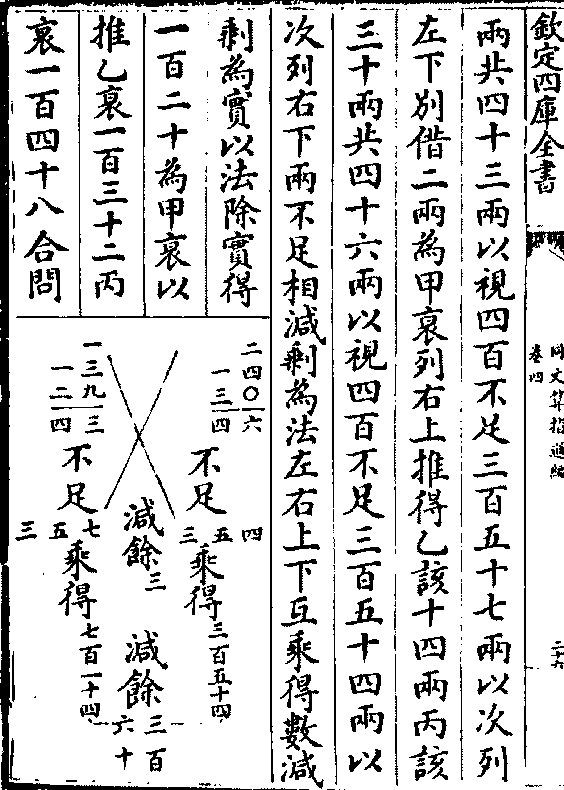 欽定四庫全書
同文算指通編
卷四
二十六
兩共四十三兩以視四百不足三百五十七兩以次列
左下別借二兩為甲衰列右上推得乙該十四兩丙該
三十兩共四十六兩以視四百不足三百五十四兩以
次列右下兩不足相減剩為法左右上下互乘得數減
剩為實以法除實得
一百二十為甲衰以
推乙衰一百三十二丙
衰一百四十八合問
二四〇六
一三四
不足
三五四
乘得
三百五十四
減餘
三
減餘
三百
六十
一三九三
一二四
不足
三五七
乘得
七百一十四